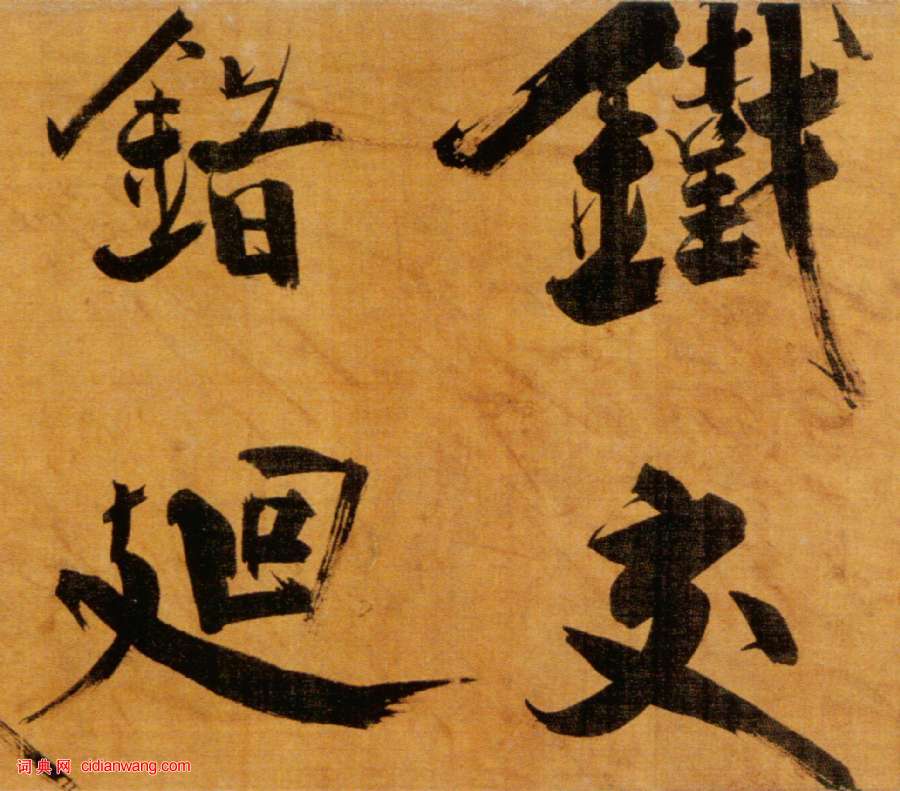 鐵交
錯廻
词典网 cidianwang.com